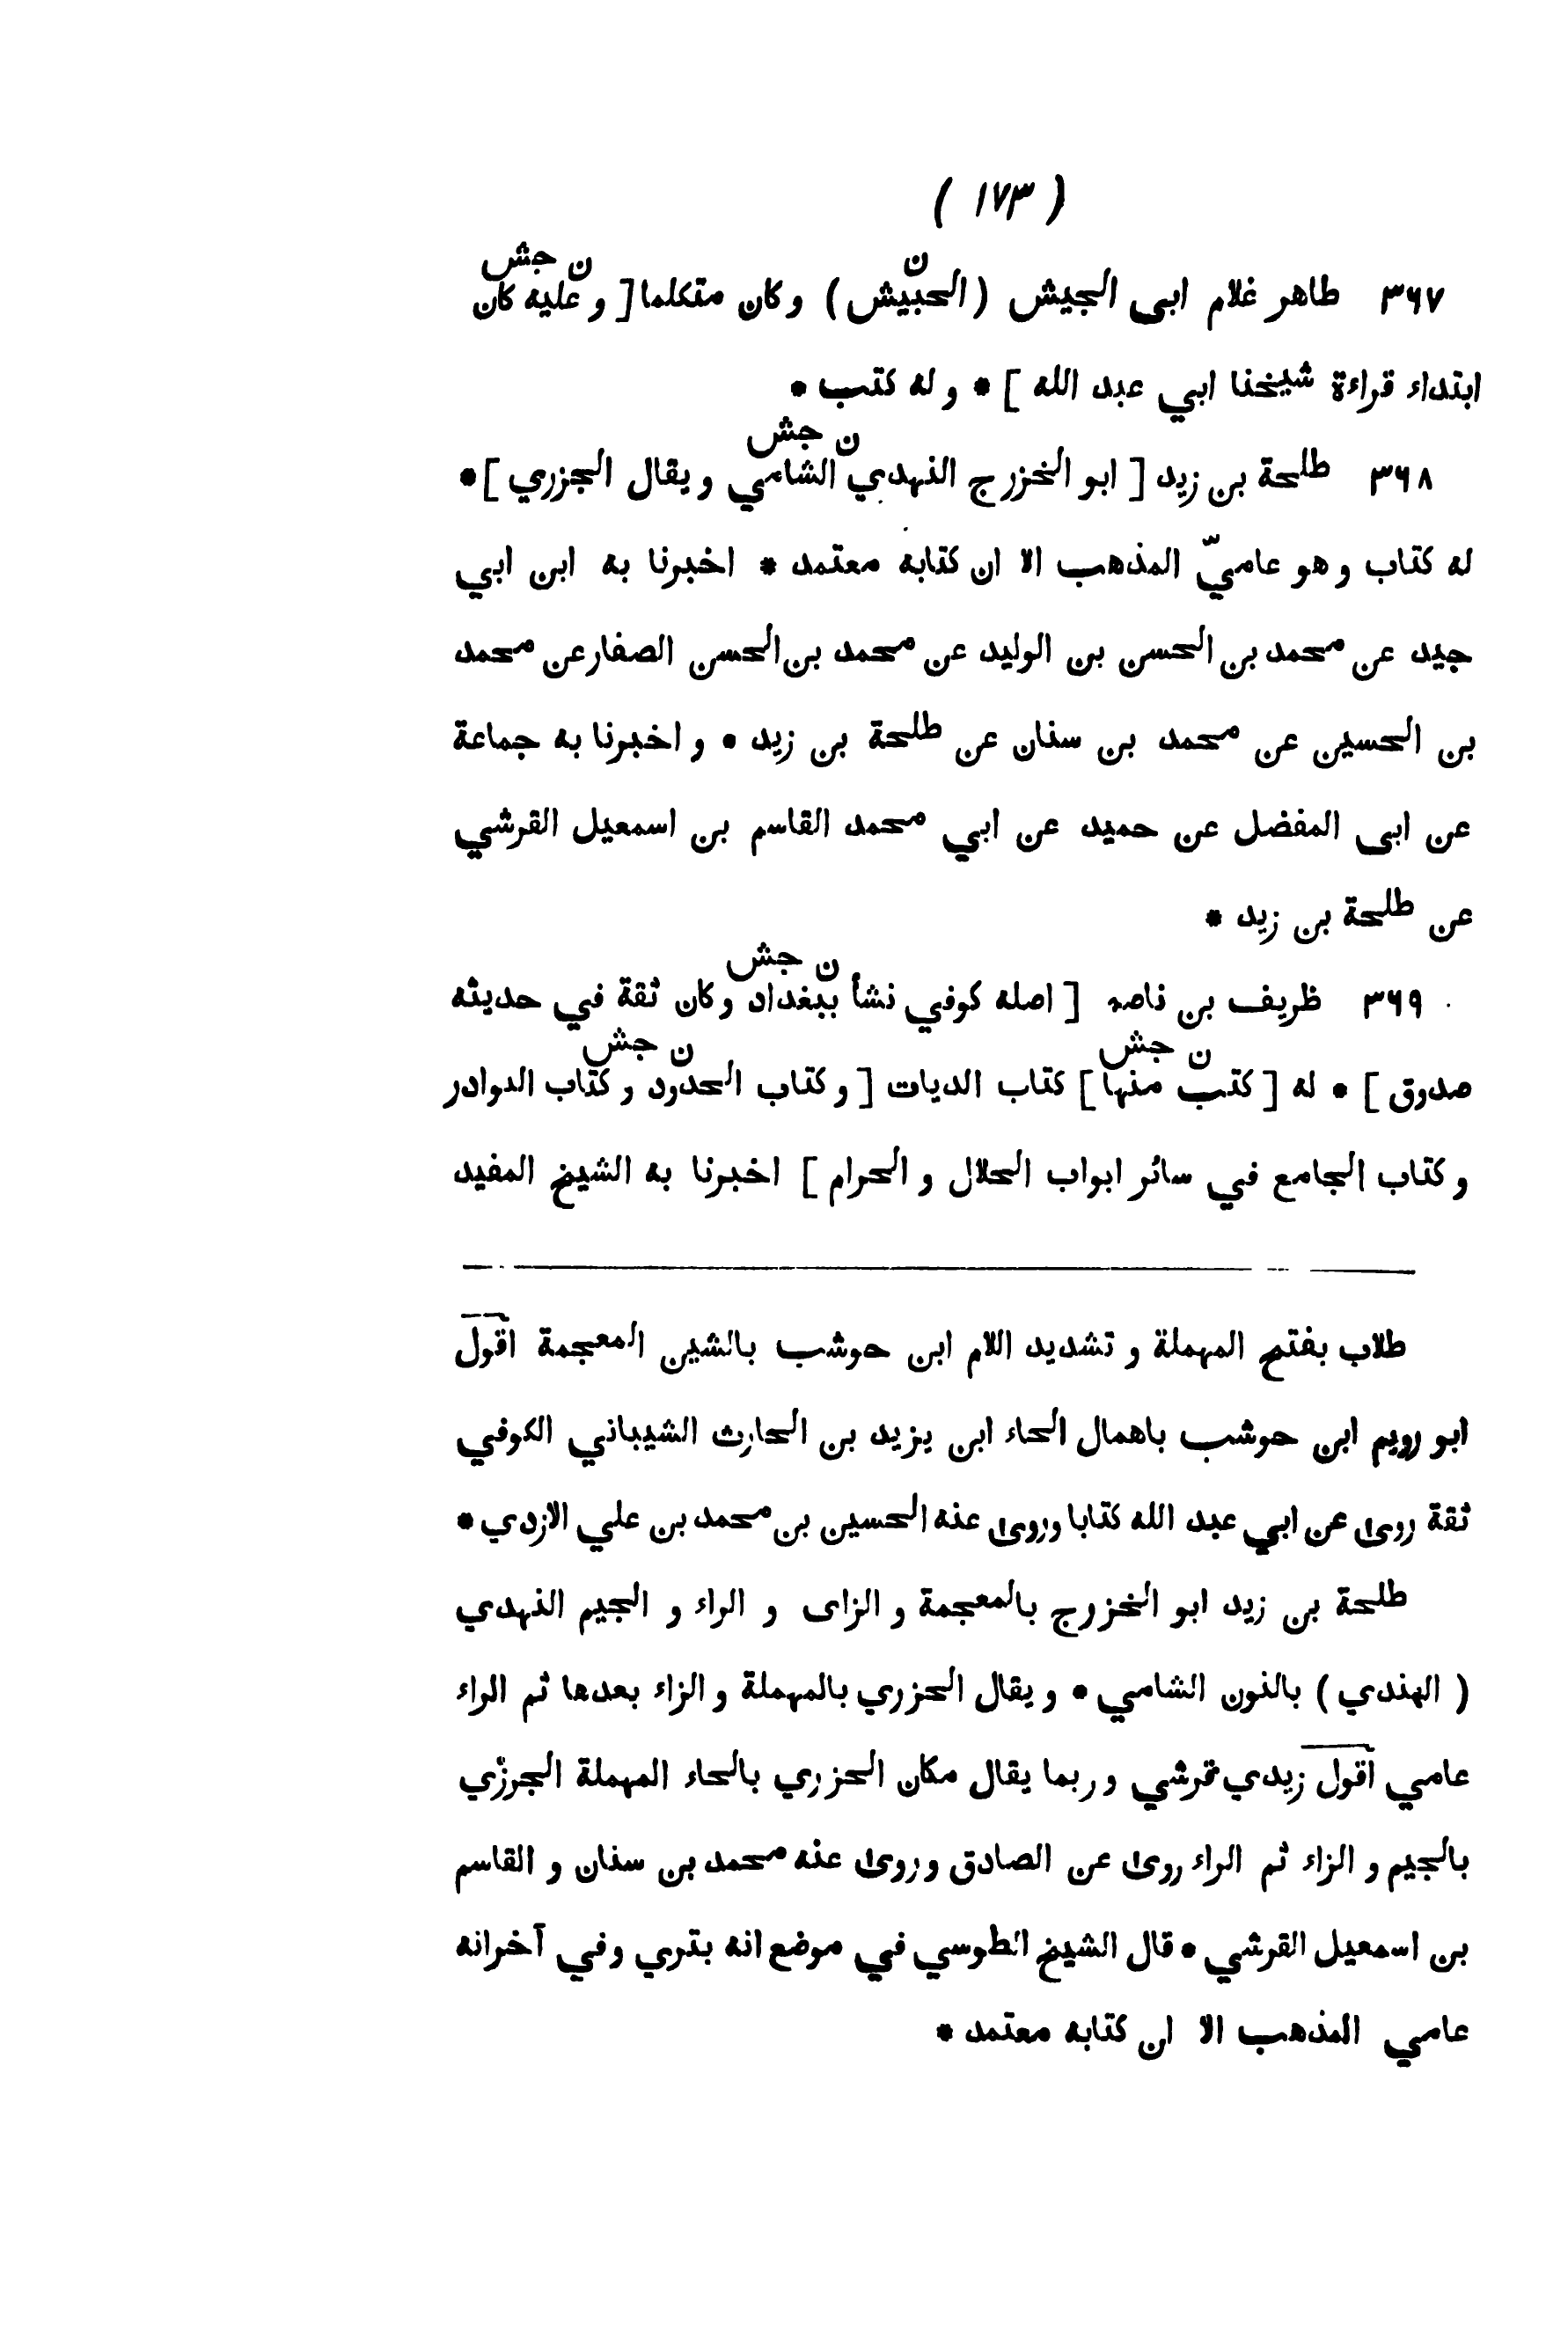 ( ١٧٣ )
ن     ن جش
٣٦٧ طاهر غلام ابى الجيش (الحبيش) وكان متكلما [ و عليه كان
ابتداء قراءة شيخنا ابي عبد الله ] * و له كتب *
ن جش
٣٦٨ طلحة بن زيد [ ابو الخزرج النهدي الشامي و يقال الجزري ] *
له كتاب و هو عاميّ المذهب الا ان كتابه معتمد * اخبرنا به ابن ابي
جيد عن محمد بن الحسن بن الوليد عن محمد بن الحسن الصفار عن محمد
بن الحسين عن محمد بن سنان عن طلحة بن زيد * و اخبرنا به جماعة
عن ابى المفضل عن حميد عن ابي محمد القاسم بن اسمعيل القرشي
عن طلحة بن زيد *
ن جش
٣٦٩ ظريف بن ناصح [ اصله كوفي نشأ ببغداد وكان ثقة في حديثه
ن جش     ن جش
صدوق ] * له [ كتب منها ] كتاب الديات [ و كتاب الحدود و كتاب النوادر
و كتاب الجامع في سائر ابواب الحلال و الحرام ] اخبرنا به الشيخ المفيد
طلاب بفتح المهملة و تشديد اللام ابن حوشب بالشين المعجمة اقول
ابو رويم ابن حوشب باهمال الحاء ابن يزيد بن الحارث الشيباني الكوفي
ثقة روى عن ابي عبد الله كتابا وروى عنه الحسين بن محمد بن علي الازدي *
طلحة بن زيد ابو الخزرج بالمعجمة و الزاى و الراء و الجيم النهدي
( الهندي ) بالنون الشامي * و يقال الحزري بالمهملة و الزاء بعدها ثم الراء
عامي اقول زيدي قرشي و ربما يقال مكان الحزري بالحاء المهملة الجرزي
بالجيم و الزاء ثم الراء روى عن الصادق و روى عنه محمد بن سنان و القاسم
بن اسمعيل القرشي * قال الشيخ الطوسي في موضع انه بتري و في آخر انه
عامي المذهب الا ان كتابه معتمد *